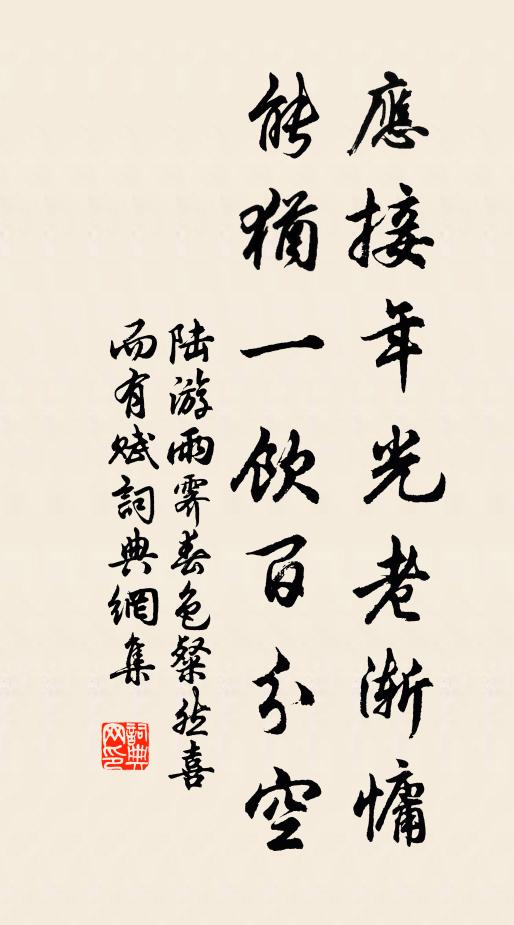 應接年光老漸慵
能猶一飲百分空
陸游雨霽春色粲然喜
而有賦詞典網集
詞典网印